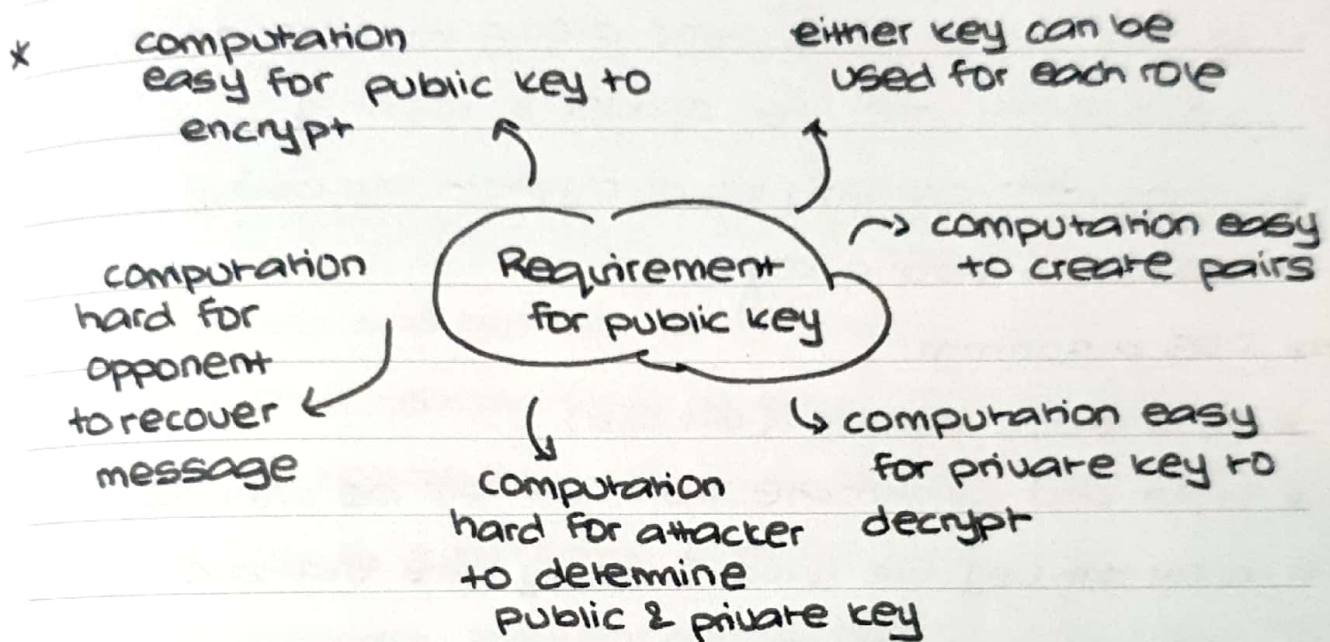 * computation
easy for public key to
encrypt
either key can be
used for each role
Requirement
for public key
computation easy
to create pairs
computation easy
for private key to
decrypt
computation
hard for attacker
to determine
public & private key
computation
hard for
opponent
to recover
message